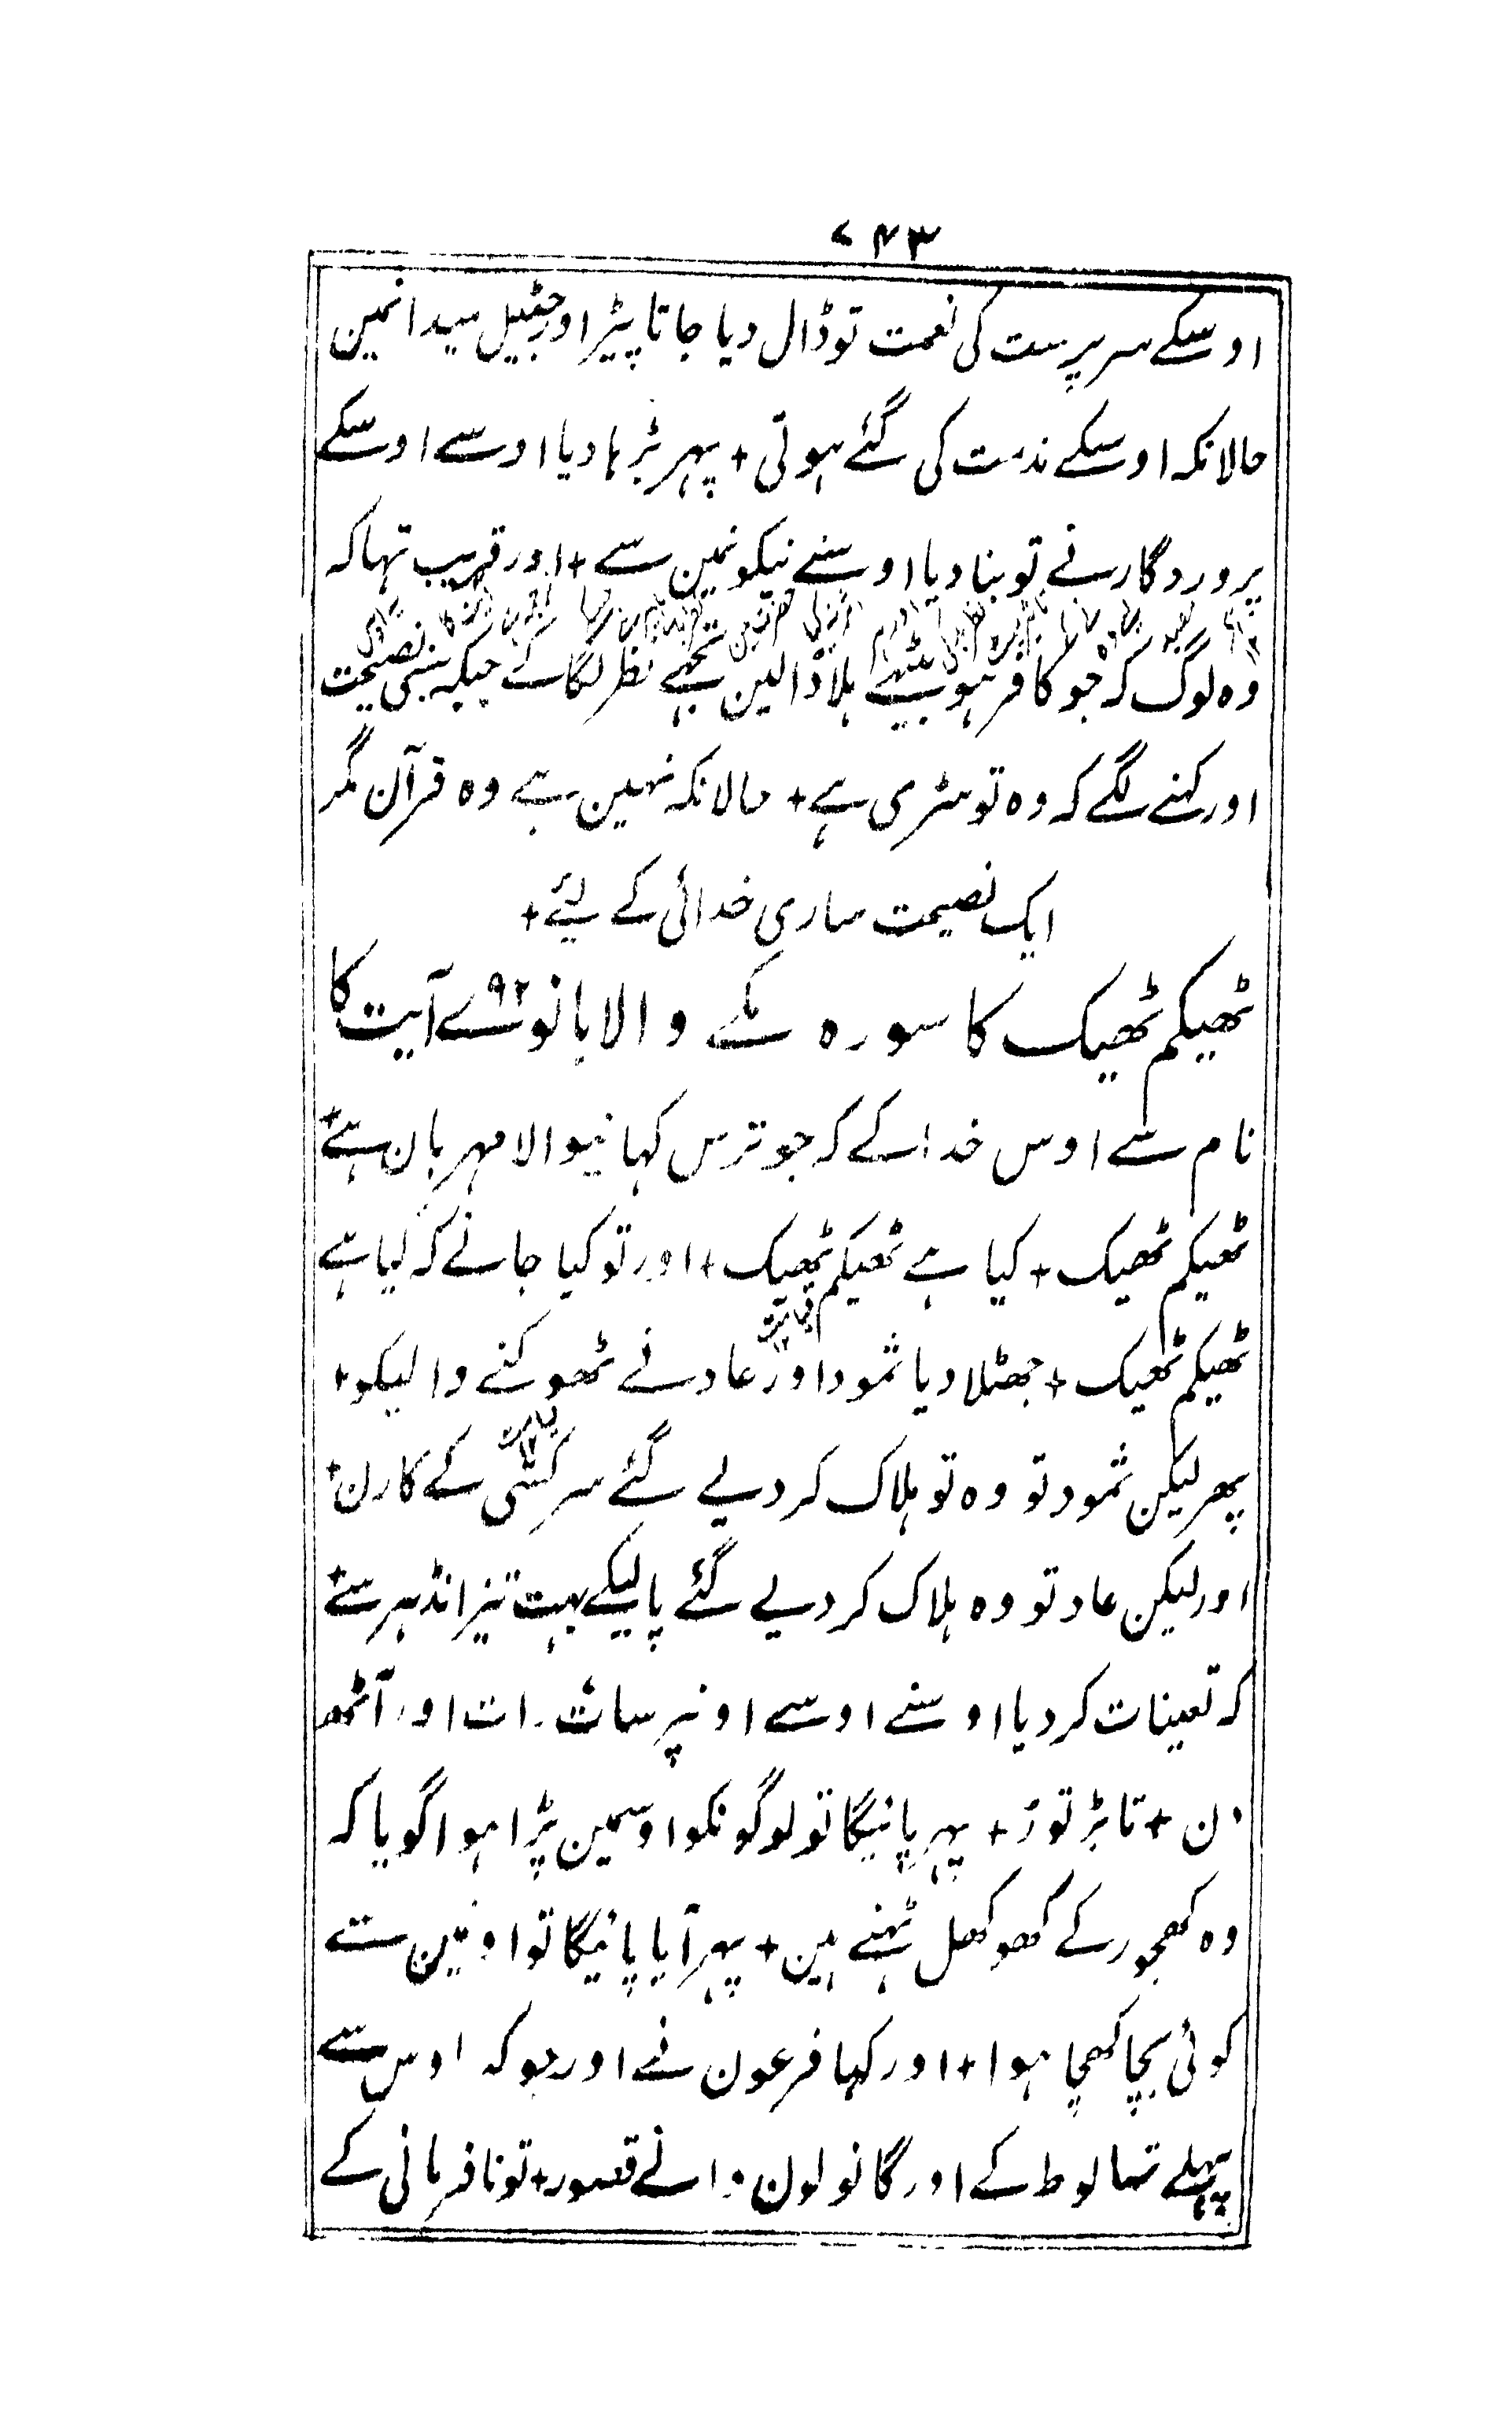 ۷۴۳
اوسکے سرپرست کی نعمت تو ڈال دیا جاتا پیڑ اور چٹیل میدانمین
حالانکہ اوسکے مذمت کی گئے ہوتی + پہر بڑہا دیا اوسے اوسکے
پروردگار نے تو بنا دیا اوسنے نیکونمین سے + اور قریب تہا کہ
وہ لوگ کہ جو کافر ہو بیٹھے ہلا ڈالین تجہے نظر لگا کے جبکہ سنی نصیحت
اور کہنے لگے کہ وہ تو سڑی ہے + حالانکہ نہین ہے وہ قرآن مگر
ایک نصیحت ساری خدائی کے لیئے +
ٹھیکم ٹھیک کا سورہ مکے والا بانوے ۹۲ آیت کا
نام سے اوس خدا کے کہ جو ترس کہانیوالا مہربان ہے +
ٹھیکم ٹھیک + کیا ہے ٹھیکم ٹھیک + اور تو کیا جانے کہ کیا ہے
ٹھیکم ٹھیک + جھٹلا دیا ثمود اور عاد نے ٹھوکنے والیکو +
پھر لیکن ثمود تو وہ تو ہلاک کر دیے گئے سرکشی کے کارن +
اور لیکن عاد تو وہ ہلاک کر دیے گئے پالیکے بہت تیز انڈہر سے +
کہ تعینات کر دیا اوسنے اوسے اونپر سات رات اور آٹھ
دن + تابڑ توڑ + پہر پائیگا تو لوگونکو اوسمین پڑا ہوا گویا کہ
وہ کھجور کے کھوکھل ٹہنے ہین + پہر آیا پائیگا تو اونمین سے
کوئی بچا کھچا ہوا + اور کہا فرعون نے اور جو کہ اوس سے
پہلے تہا لوط کے اور گانولون والے قصور + تو نافرمانی کے